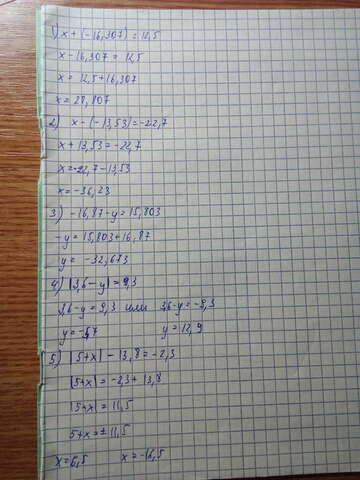 1) x + (-16,307) = 12,5
x - 16,307 = 12,5
x = 12,5 + 16,307
x = 28,807
2) x - (-13,53) = -22,7
x + 13,53 = -22,7
x = -22,7 - 13,53
x = -36,23
3) -16,87 - y = 15,803
-y = 15,803 + 16,87
y = -32,673
4) |3,6 - y| = 9,3
3,6 - y = 9,3 или 3,6 - y = -9,3
y = -5,7 y = 12,9
5) |5+x| - 13,8 = -2,3
|5+x| = -2,3 + 13,8
|5+x| = 11,5
5+x = ±11,5
x = 6,5 x = -16,5